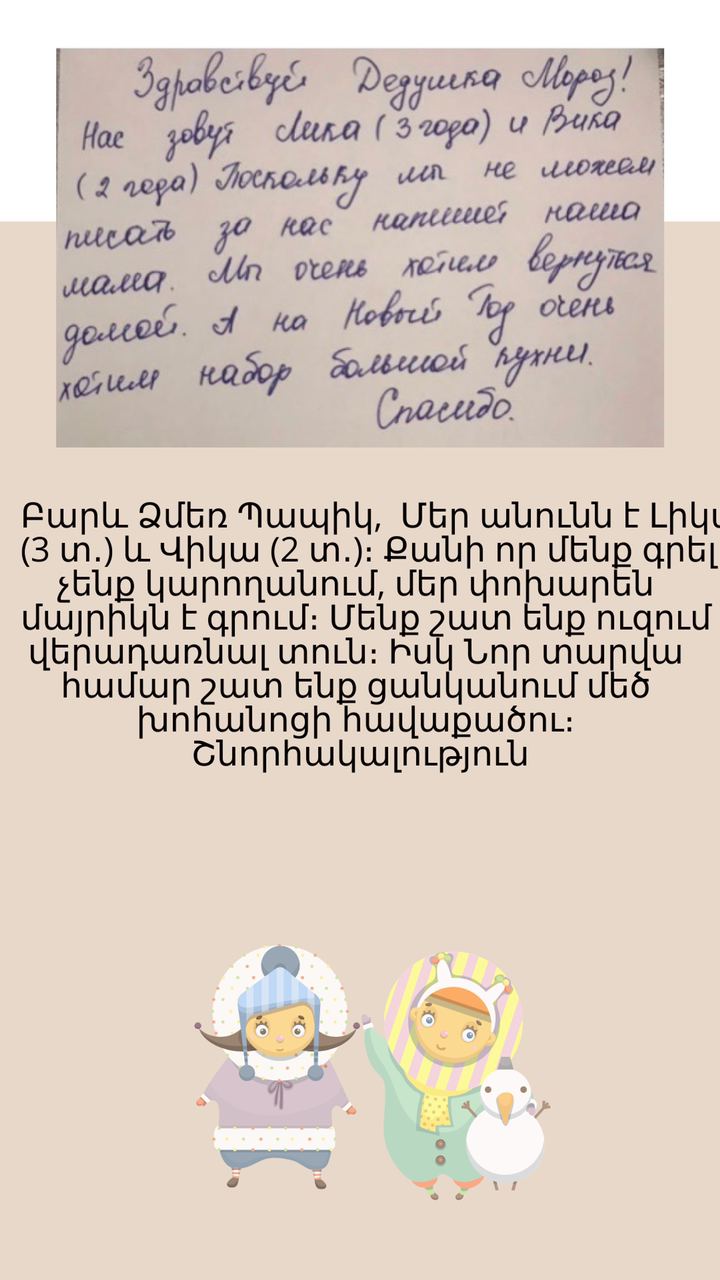 Здравствуй Дедушка Мороз!
Нас зовут Лика (3 года) и Вика
(2 года) Поскольку мы не можем
писать за нас напишет наша
мама. Мы очень хотим вернуться
домой. А на Новый Год очень
хотим набор большой кухни.
Спасибо.
Բարև Ձմեռ Պապիկ, Մեր անունն է Լիկա
(3 տ.) և Վիկա (2 տ.)։ Քանի որ մենք գրել
չենք կարողանում, մեր փոխարեն
մայրիկն է գրում։ Մենք շատ ենք ուզում
վերադառնալ տուն։ Իսկ Նոր տարվա
համար շատ ենք ցանկանում մեծ
խոհանոցի հավաքածու։
Շնորհակալություն